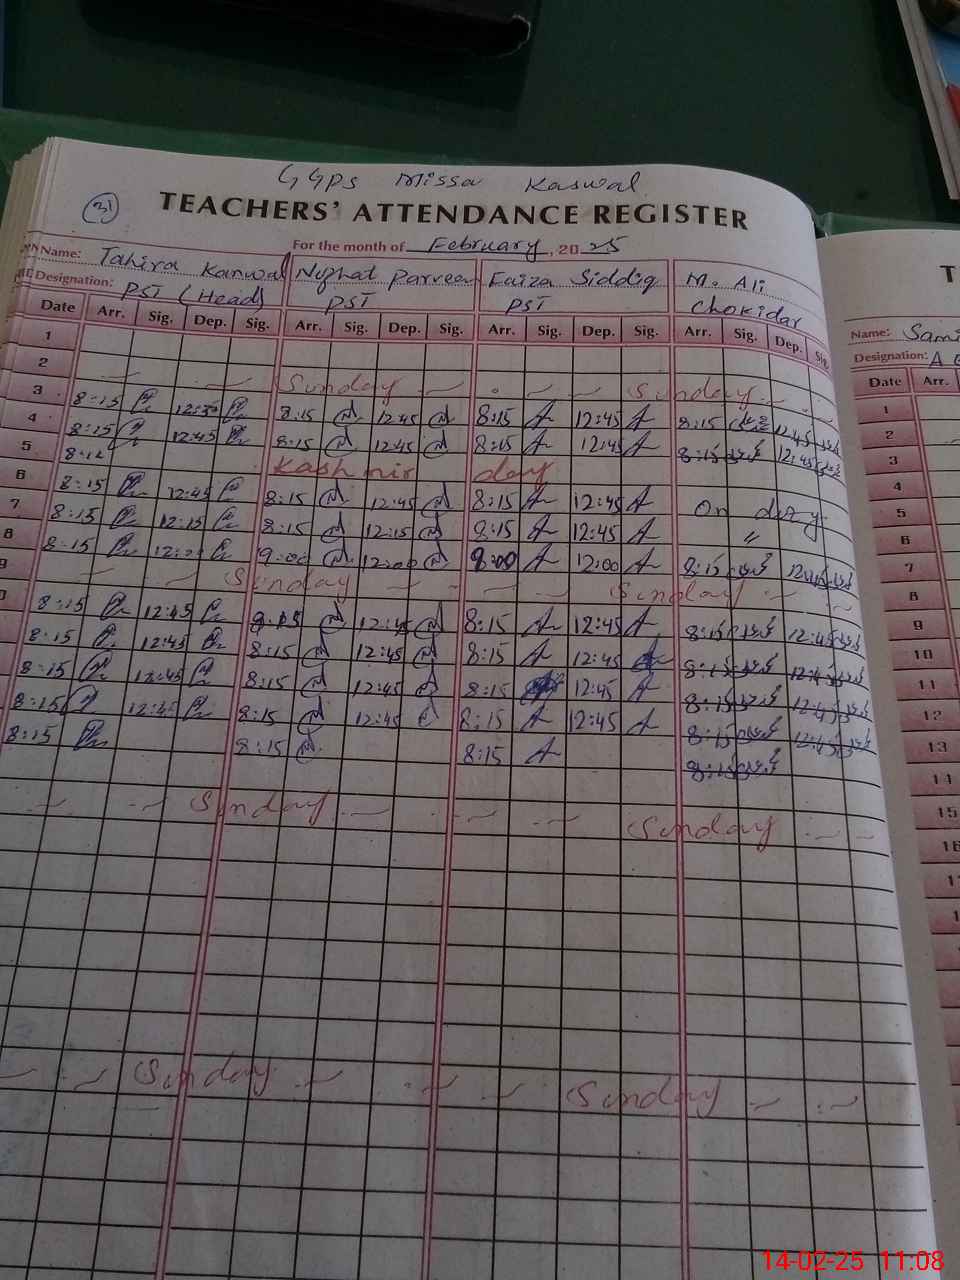 GGPS Missa Kaswal
31
TEACHERS' ATTENDANCE REGISTER
For the month of February, 2025
Name: Tahira Kanwal Nuzhat Parveen Faiza Siddiq M. Ali
Designation: PST (Head) PST PST Chokidar
Date Arr. Sig. Dep. Sig. Arr. Sig. Dep. Sig. Arr. Sig. Dep. Sig. Arr. Sig. Dep. Sig.
1
2 Sunday Sunday
3 8:15 12:30 8:15 12:45 8:15 12:45 8:15 12:45
4 8:15 12:45 8:15 12:45 8:15 12:45 8:15 12:45
5 8:15 Kashmir day
6 8:15 12:45 8:15 12:45 8:15 12:45 On duty
7 8:15 12:15 8:15 12:15 8:15 12:45 "
8 8:15 12:00 9:00 12:00 9:00 12:00 8:15 12:45
9 Sunday Sunday
8:15 12:45 8:15 12:45 8:15 12:45 8:15 12:45
8:15 12:45 8:15 12:45 8:15 12:45 8:15 12:45
8:15 12:45 8:15 12:45 8:15 12:45 8:15 12:45
8:15 12:45 8:15 12:45 8:15 12:45 8:15 12:45
8:15 8:15 8:15 8:15
Sunday Sunday
Sunday Sunday
T
Name: Sami
Designation: A
Date Arr.
1
2
3
4
5
6
7
8
9
10
11
12
13
14
15
16
14-02-25 11:08